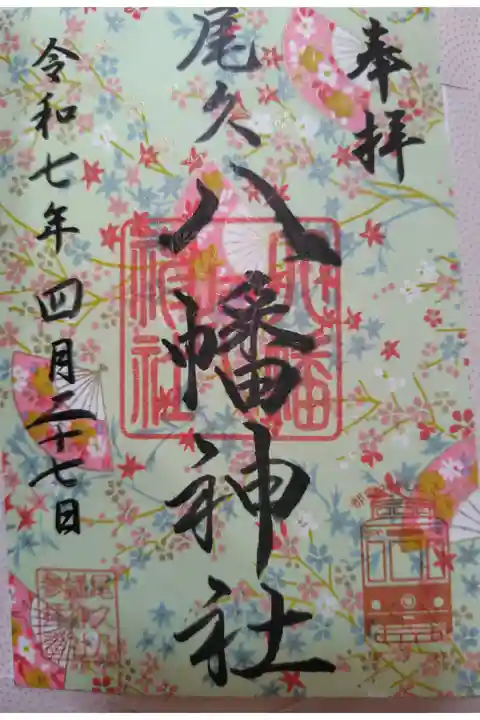 奉拝
尾久八幡神社
令和七年四月二十七日
八幡神社